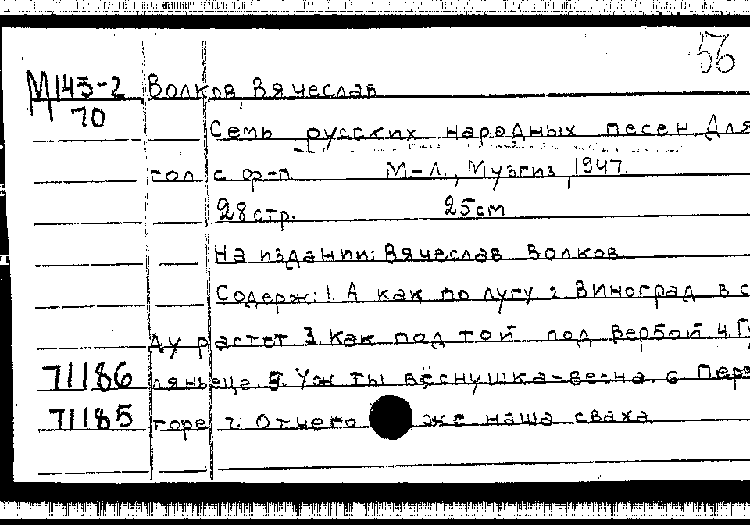 56
М143-2 Волков Вячеслав
70
Семь русских народных песен Для
гол с ф-п М-Л., Музгиз, 1947
28 стр. 25 cm
На издании: Вячеслав Волков
Содерж: 1. А как по лугу 2. Виноград в с
ду растет 3. Как под той под вербой 4. Гу
71186 ляньеце 5. Уж ты вёснушка-весна. 6
71185 горе 7. Отчего же наша сваха